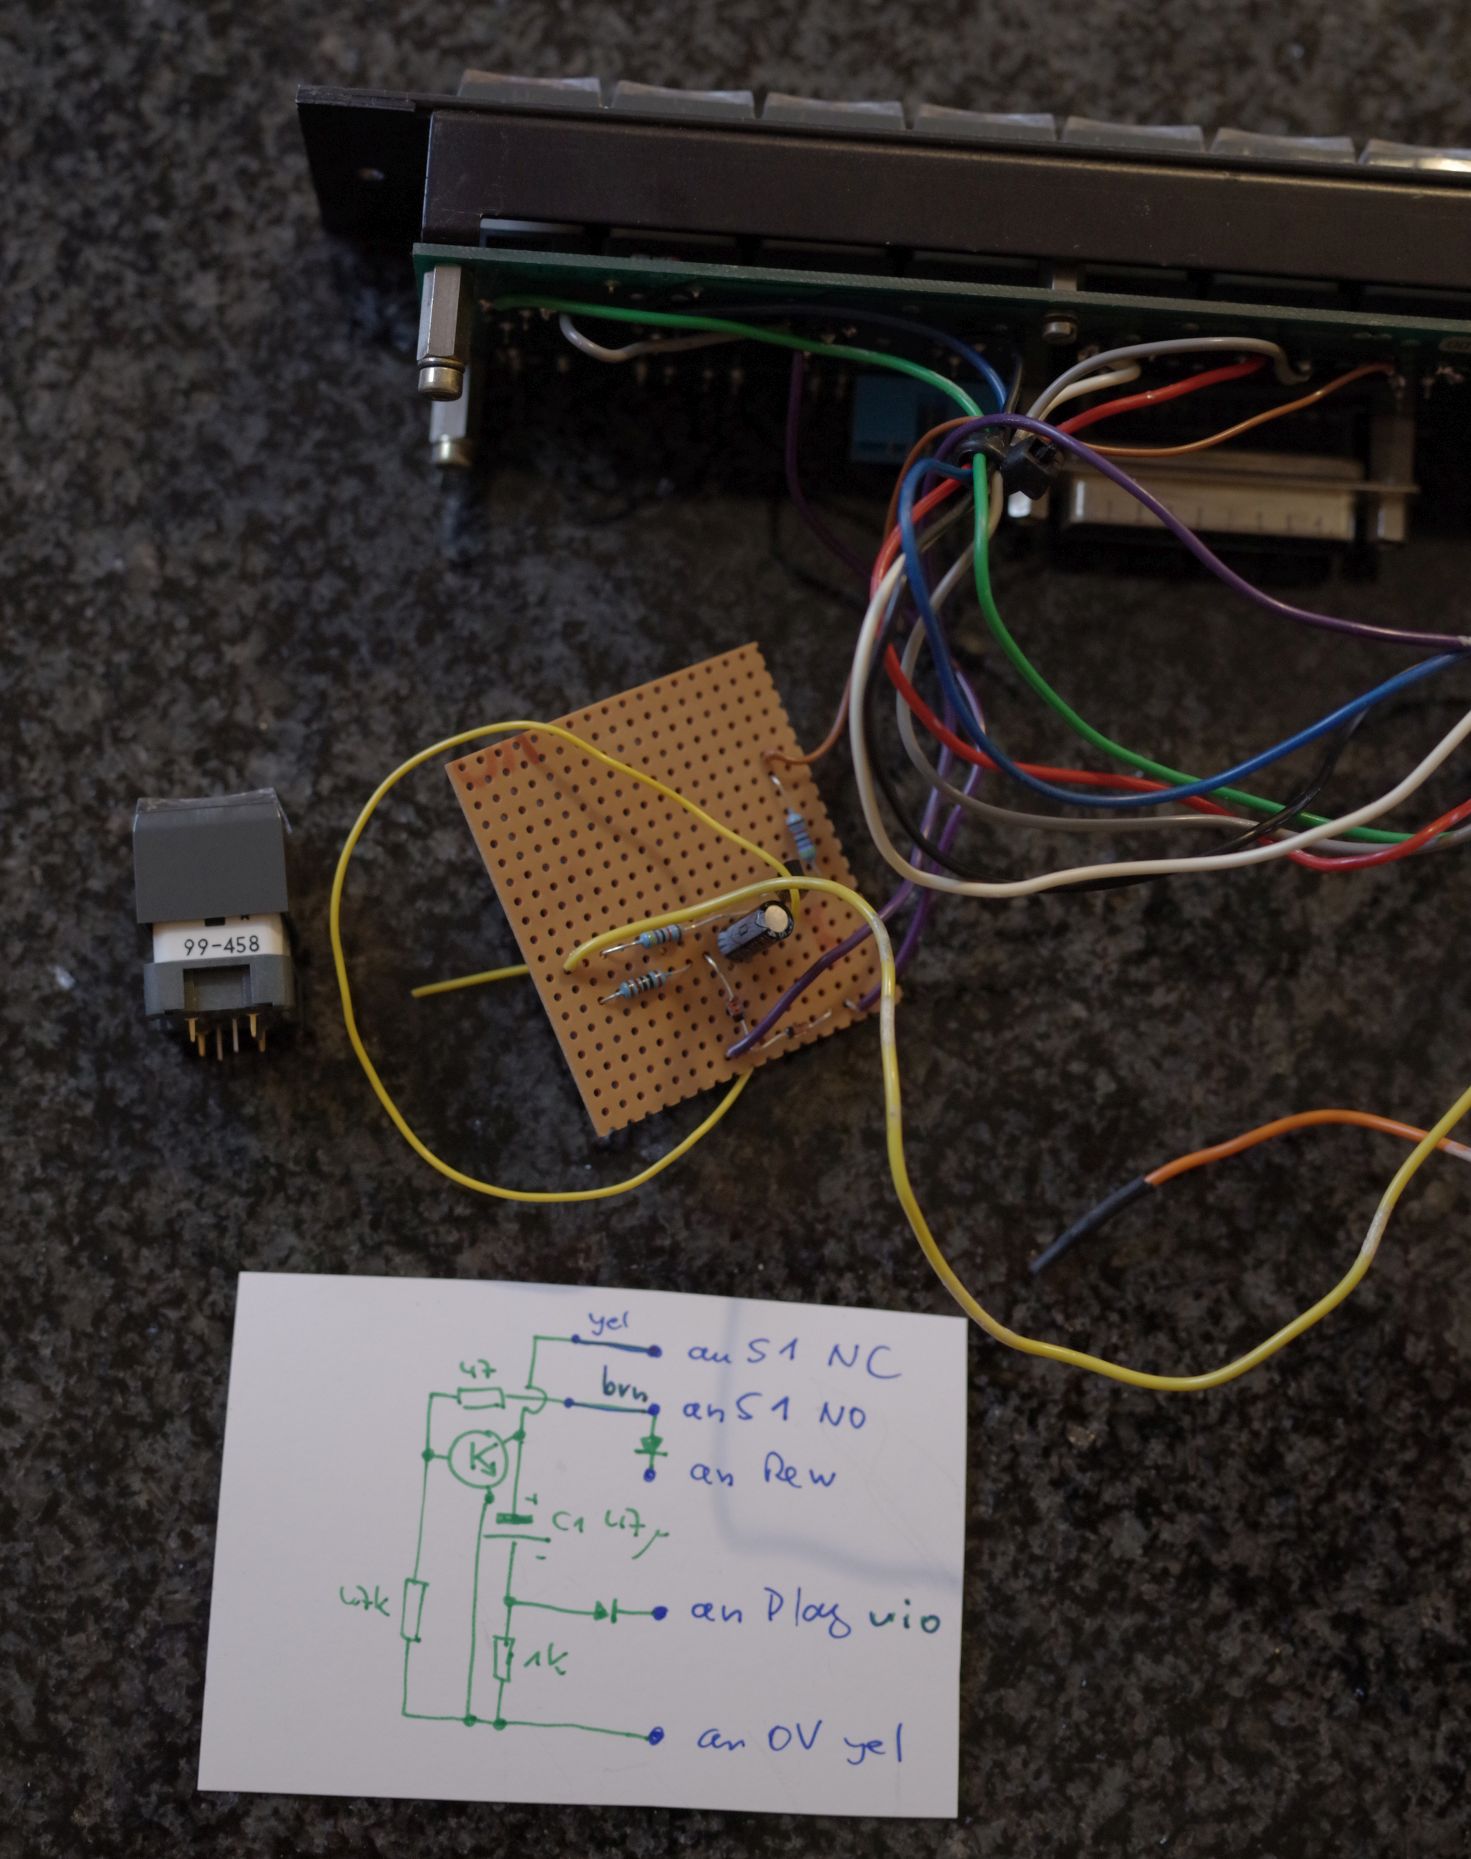 99-458
yel
an S1 NC
47
brn
an S1 NO
K
an Rew
+
C1 47µ
-
47k
an Play vio
1k
an 0V yel